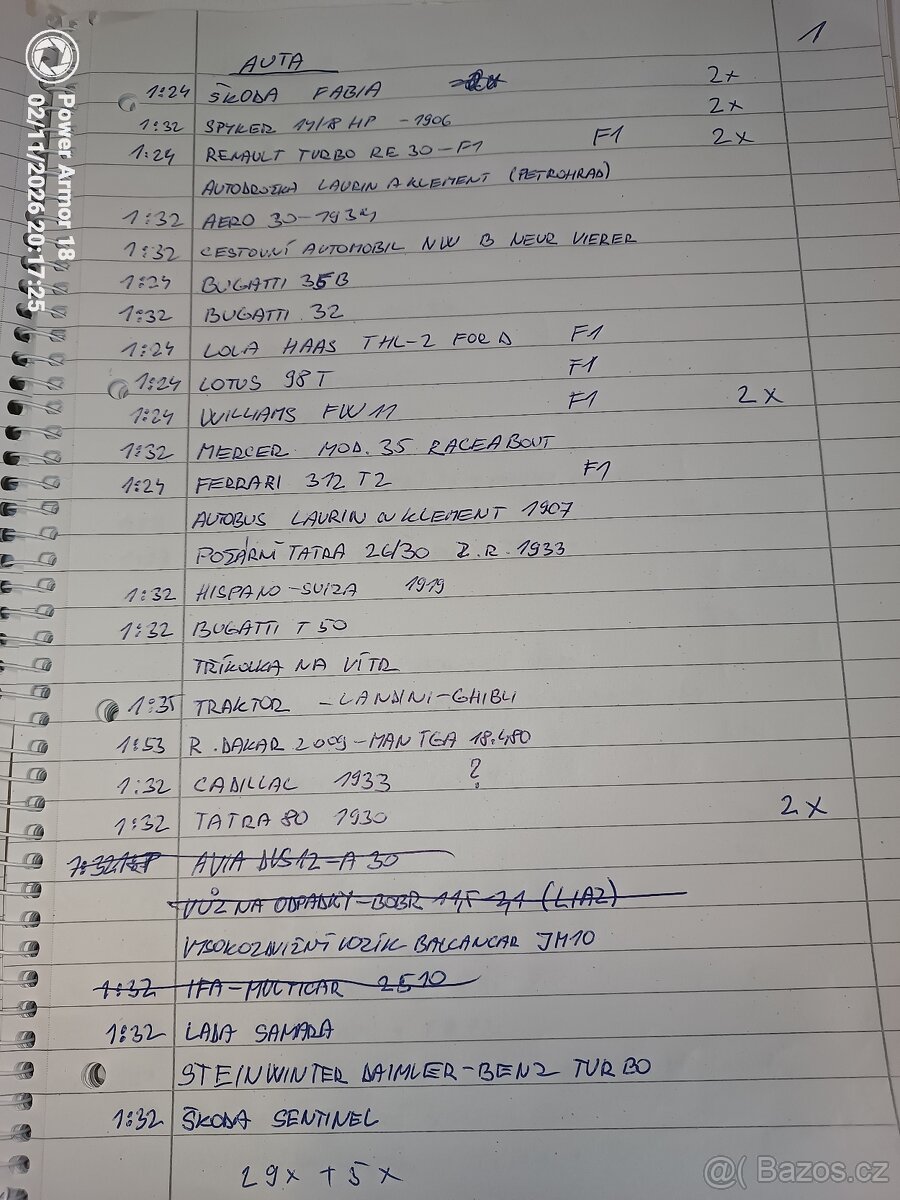 1
AUTA
1:24 ŠKODA FABIA 2x
1:32 SPYKER 14/18 HP - 1906 2x
1:24 RENAULT TURBO RE 30-F1 F1 2x
AUTODROŽKA LAURIN A KLEMENT (PETROHRAD)
1:32 AERO 30-1934
1:32 CESTOVNÍ AUTOMOBIL NW B NEUR VIERER
1:24 BUGATTI 35B
1:32 BUGATTI 32
1:24 LOLA HAAS THL-2 FORD F1
1:24 LOTUS 98T F1
1:24 WILLIAMS FW 11 F1 2x
1:32 MERCER MOD. 35 RACEABOUT
1:24 FERRARI 312 T2 F1
AUTOBUS LAURIN a KLEMENT 1907
POŽÁRNÍ TATRA 26/30 Z.R. 1933
1:32 HISPANO-SUIZA 1919
1:32 BUGATTI T 50
TŘÍKOLKA NA VÍTR
1:35 TRAKTOR - LANDINI-GHIBLI
1:53 R. DAKAR 2009-MAN TGA 18.480
1:32 CADILLAC 1933 ?
1:32 TATRA 80 1930 2x
1:32 AVIA DVS12-A 30
VŮZ NA ODPADKY-BOBR (LIAZ)
VYSOKOZDVIŽNÝ VOZÍK BALCANCAR JM10
1:32 IFA-MULTICAR 2510
1:32 LADA SAMARA
STEINWINTER DAIMLER-BENZ TURBO
1:32 ŠKODA SENTINEL
29x + 5x
Power Armor 18
02/11/2026 20:17:25
@( Bazos.cz